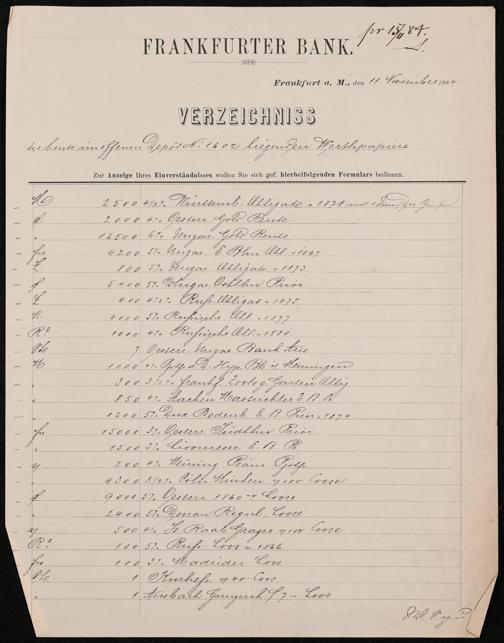 pr 15/11 84.
FRANKFURTER BANK.
Frankfurt a. M., den 11 November 1884
VERZEICHNISS
der heute im offenen Depôt No. 1602 liegenden Werthpapiere
Zur Anzeige Ihres Einverständnisses wollen Sie sich gef. hierbeifolgenden Formulars bedienen.
M 2500 4½% Württemb. Obligat.
fl 2000 4% Oesterr. Gold Rente
" 16500 6% Ungar. Gold Rente
frs 4200 5% Ungar. E. Bhn Obl. v 1867
£ 800 5% Ungar. Obligat. v 1873
fl 5400 5% Ungar. Ostbhn Prior
£ 400 4½% Russ. Obligat. v 1875
R 4100 5% Russische Obl. v 1877
Ro 1000 4% Russische Obl. v 1880.
Stk 7 Oesterr. Ungar. Bank Actie
M 1000 4% Pfdbr. d. D. Hyp. Bk i/ Meiningen
" 300 3½% Frankf. Zoolog. Garten Oblig
" 850 4% Aachen Mastrichter E. B. P.
" 1200 5% Dux Bodenb. E. B. Prior. v 1874
frs 15000 3% Oesterr. Südbhn Prior.
" 1500 3% Livorneser E. B. P.
200 4% Meining. Präm. Pfdbr
" 4300 3½% Cöln Minden 100 Loose
fl 9000 5% Oesterr. 1860er Loose
" 2400 5% Donau Regul. Loose
500 4% St. Raab Grazer 100 Loose
Ro 100 5% Russ. Loos v. 1866
frs 100 3% Madrider Loos
Stk 1 Kurhess. 40 Loos.
" 1 Ansbach Gunzenh. f 7 – Loos